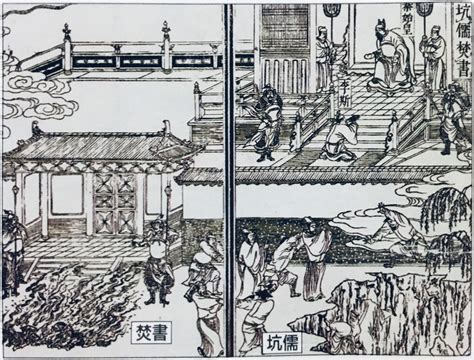 坑儒焚書
秦始皇
李斯
焚書
坑儒